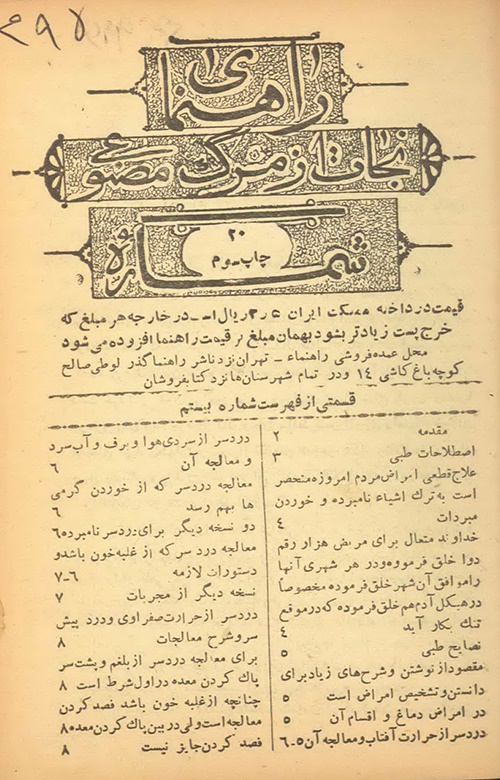 ۲۹۸
راهنمای
نجات از مرگ مصنوعی
شماره
۲۰
چاپ دوم
قیمت در داخله مملکت ایران ریال است در خارجه هر مبلغ که
خرج پست زیادتر بشود بهمان مبلغ بر قیمت راهنما افزوده می شود
محل عمده فروشی راهنماء - تهران نزد ناشر راهنما گذر لوطی صالح
کوچه باغ کاشی ۱۴ و در تمام شهرستان ها نزد کتابفروشان
قسمتی از فهرست شماره بیستم
مقدمه ۲
اصطلاحات طبی ۳
علاج قطعی امراض مردم امروزه منحصر
است به ترك اشیاء نامبرده و خوردن
مبردات ۴
خداوند متعال برای مریض هزار رقم
دوا خلق فرموده و در هر شهری آنها
را موافق آن شهر خلق فرموده مخصوصاً
در هیکل آدم هم خلق فرموده که در موقع
تنك بکار آید ۴
نصایح طبی ۵
مقصود از نوشتن و شرح های زیاد برای
دانستن و تشخیص امراض است ۵
در امراض دماغ و اقسام آن ۵
دردسر از حرارت آفتاب و معالجه آن ۵-۶
دردسر از سردی هوا و برف و آب سرد
و معالجه آن ۶
معالجه دردسر که از خوردن گرمی
ها بهم رسد ۶
دو نسخه دیگر برای دردسر نامبرده ۶
معالجه دردسر که از غلبه خون باشد و
دستورات لازمه ۶-۷
نسخه دیگر از مجربات ۷
دردسر از حرارت صفراوی و درد پیش
سر و شرح معالجات ۸
برای معالجه دردسر از بلغم و پشت سر
پاك کردن معده در اول شرط است ۸
چنانچه از غلبه خون باشد فصد کردن
معالجه است ولی در بین پاك کردن معده ۸
فصد کردن جایز نیست ۸